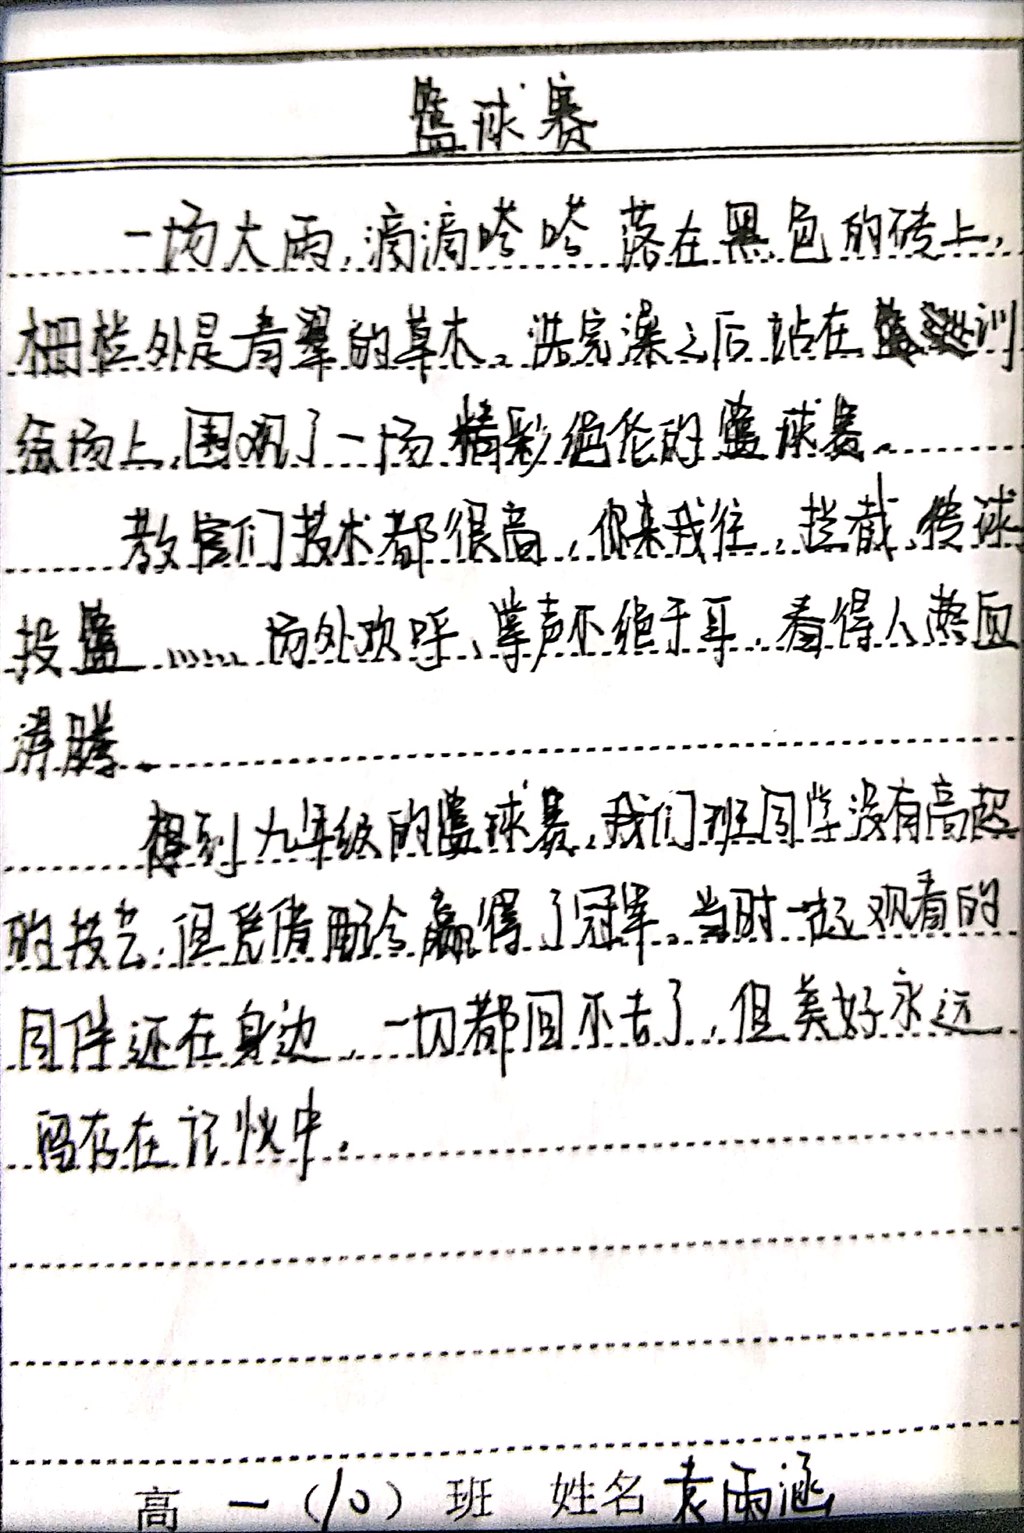 篮球赛
一场大雨,滴滴嗒嗒落在黑色的砖上,
栅栏外是青翠的草木。洗完澡之后站在训
练场上,围观了一场精彩绝伦的篮球赛。
教官们技术都很高,你来我往,拦截、传球、
投篮……场外欢呼、掌声不绝于耳,看得人热血
沸腾。
想到九年级的篮球赛,我们班同学没有高超
的技艺,但凭借配合赢得了冠军。当时一起观看的
同伴还在身边,一切都回不去了,但美好永远
留存在记忆中。
高一(10)班 姓名袁雨涵